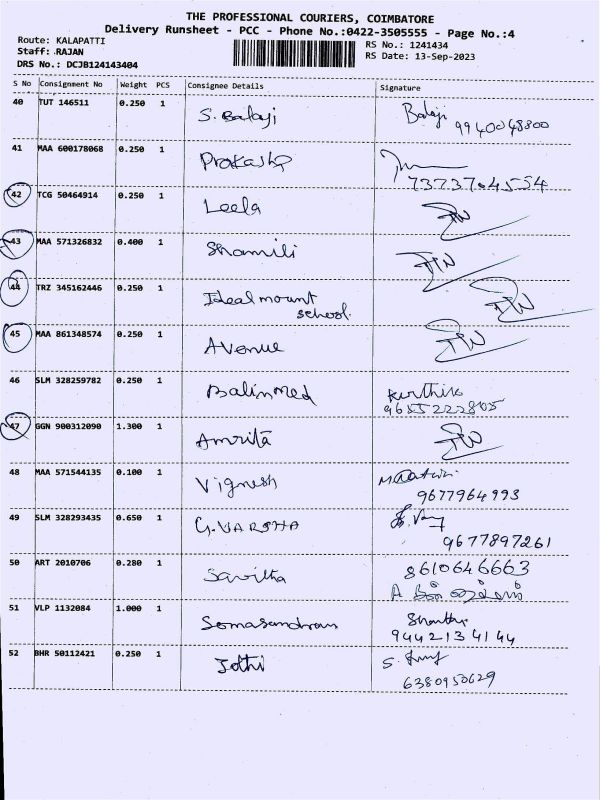 THE PROFESSIONAL COURIERS, COIMBATORE
Delivery Runsheet - PCC - Phone No.:0422-3505555 - Page No.:4
Route: KALAPATTI
Staff: RAJAN
DRS No.: DCJB124143404
RS No.: 1241434
RS Date: 13-Sep-2023
S No Consignment No Weight PCS Consignee Details Signature
40 TUT 146511 0.250 1 S. Balaji Balaji
9940048800
41 MAA 600178068 0.250 1 Prakash
7373704554
42 TCG 50464914 0.250 1 Leela
43 MAA 571326832 0.400 1 Shamili
44 TRZ 345162446 0.250 1 Ideal mount
school.
45 MAA 861348574 0.250 1 Avenue
46 SLM 328259782 0.250 1 Balinmed Kirthika
9655222805
47 GGN 900312090 1.300 1 Amrita
48 MAA 571544135 0.100 1 Vignesh
9677964993
49 SLM 328293435 0.650 1 G. VARSHA
9677897261
50 ART 2010706 0.280 1 Savitha 8610646663
51 VLP 1132084 1.000 1 Somasundram Shanthi
9442134144
52 BHR 50112421 0.250 1 Jothi
6380950629